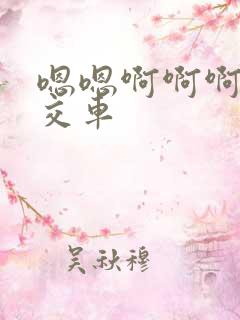 嗯嗯啊啊啊
交车
吴秋穆